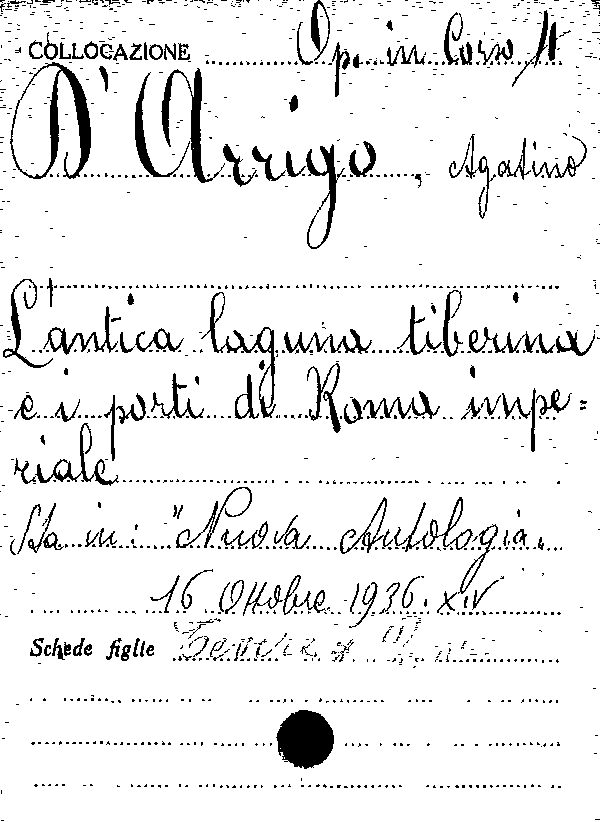 COLLOCAZIONE Op. in Corso 4
D'Arrigo, Agatino
L'antica laguna tiberina
e i porti di Roma impe=
riale
Sta in: "Nuova Antologia.
16 Ottobre 1936. XIV
Schede figlie